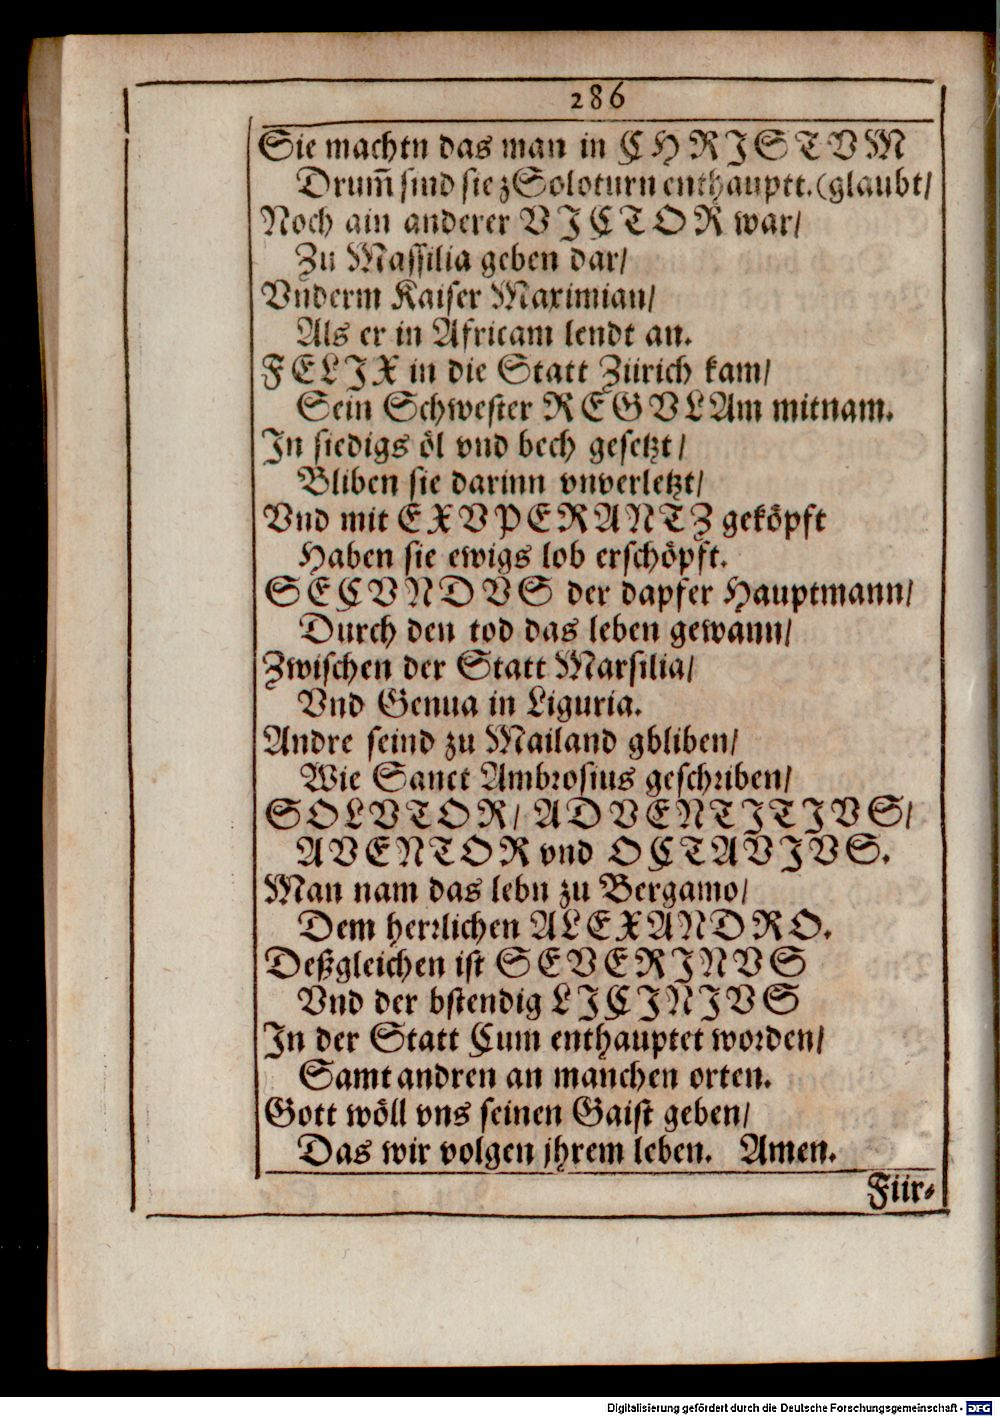 286
Sie machtn das man in CHRISTVM
Drum̄ sind sie zSoloturn enthauptt. (glaubt/
Noch ain anderer VICTOR war/
Zu Massilia geben dar/
Vnderm Kaiser Maximian/
Als er in Africam lendt an.
FELIX in die Statt Zürich kam/
Sein Schwester REGVLAm mitnam.
In siedigs öl vnd bech gesetzt/
Bliben sie darinn vnverletzt/
Vnd mit EXVPERANTZ geköpft
Haben sie ewigs lob erschöpft.
SECVNDVS der dapfer Hauptmann/
Durch den tod das leben gewann/
Zwischen der Statt Marsilia/
Vnd Genua in Liguria.
Andre seind zu Mailand gbliben/
Wie Sanct Ambrosius geschriben/
SOLVTOR/ ADVENTITIVS/
AVENTOR vnd OCTAVIVS.
Man nam das lebn zu Bergamo/
Dem herrlichen ALEXANDRO.
Deßgleichen ist SEVERINVS
Vnd der bstendig LICINIVS
In der Statt Cum enthauptet worden/
Samt andren an manchen orten.
Gott wöll vns seinen Gaist geben/
Das wir volgen jhrem leben. Amen.
Für-
Digitalisierung gefördert durch die Deutsche Forschungsgemeinschaft - DFG